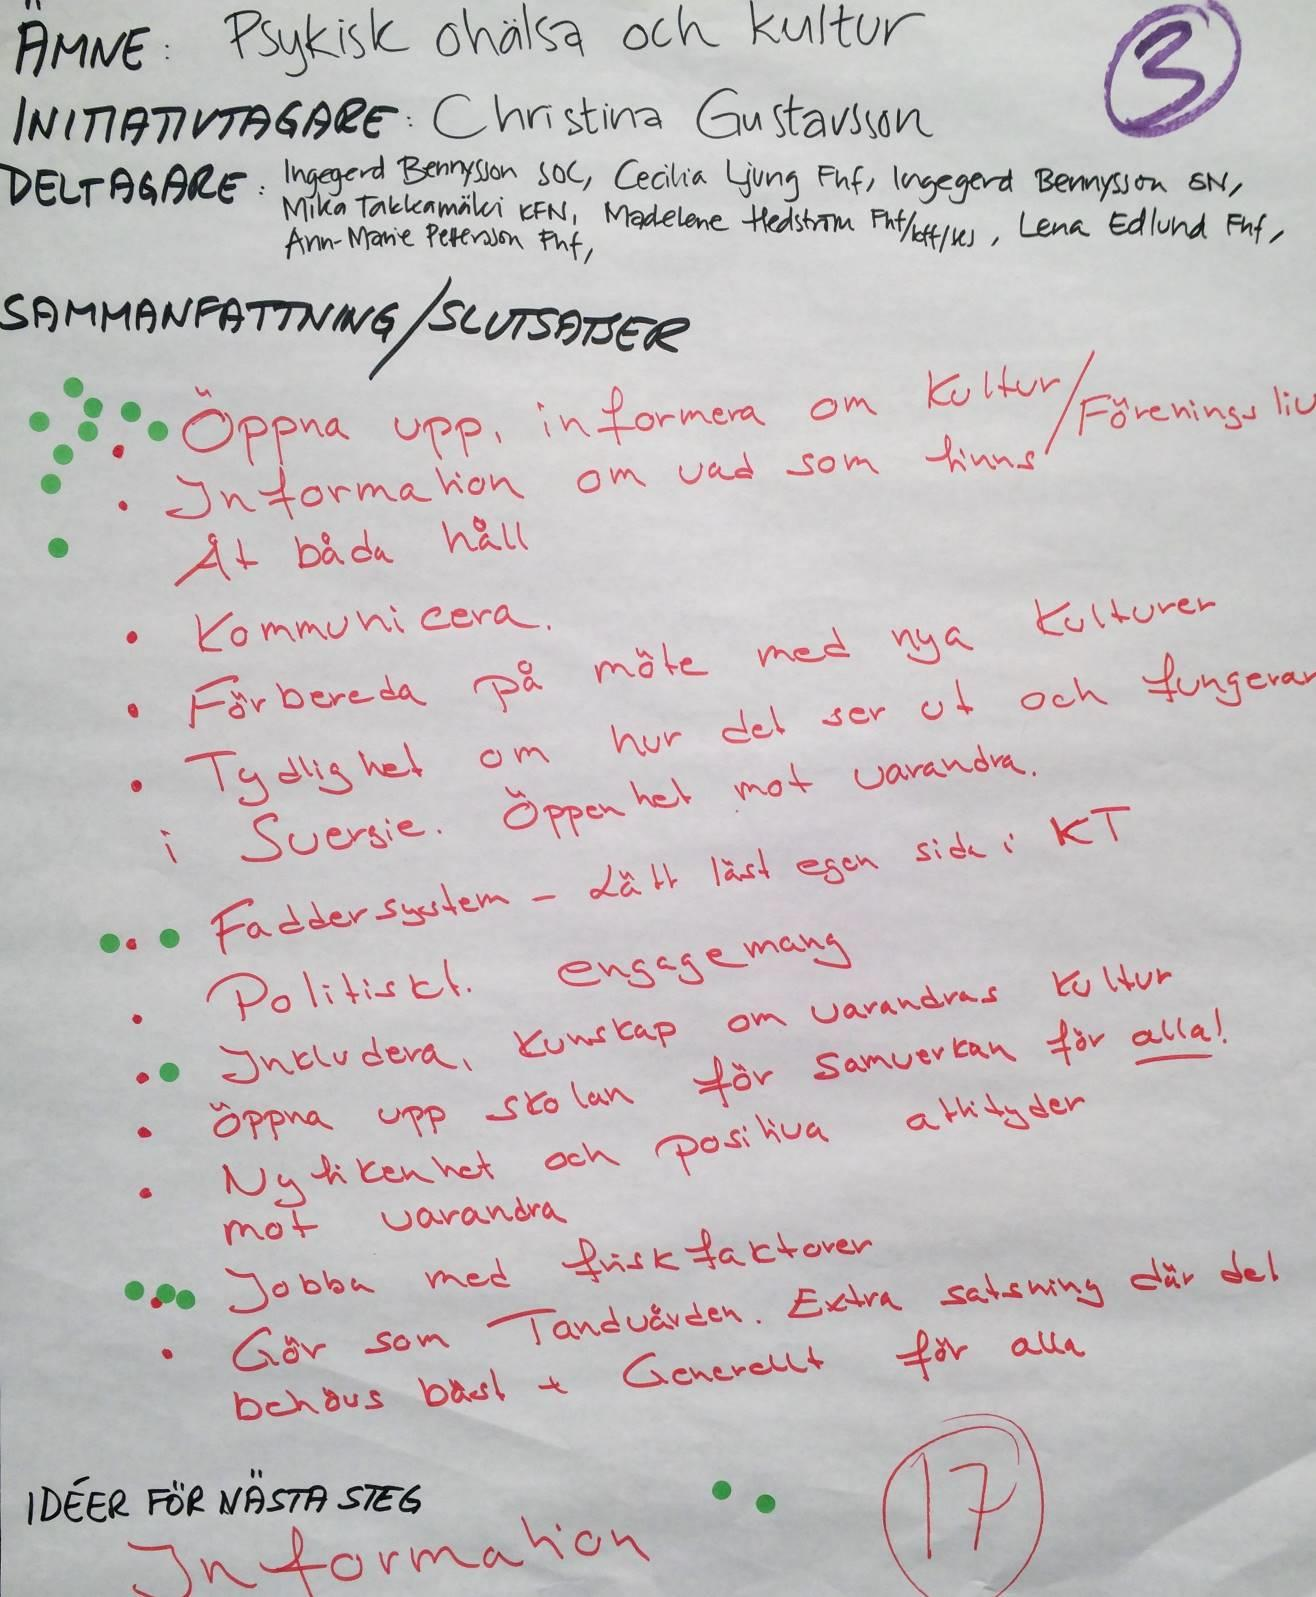 ÄMNE: Psykisk ohälsa och kultur
3
INITIATIVTAGARE: Christina Gustavsson
DELTAGARE: Ingegerd Bennysson SOC, Cecilia Ljung Fhf, Ingegerd Bennysson SN,
Mika Takkamäki KFN, Madelene Hedström Fhf/kff/ks, Lena Edlund Fhf,
Ann-Marie Petersson Fhf,
SAMMANFATTNING/SLUTSATSER
Öppna upp, informera om Kultur/Föreningsliv
• Information om vad som finns
Åt båda håll
• Kommunicera.
• Förbereda på möte med nya kulturer
• Tydlighet om hur det ser ut och fungerar
i Svergie. Öppenhet mot varandra.
• Faddersystem - Lätt läst egen sida i KT
• Politiskt. engagemang
• Inkludera, kunskap om varandras kultur
• Öppna upp skolan för samverkan för alla!
• Nyfikenhet och positiva attityder
mot varandra
• Jobba med friskfaktorer
• Gör som Tandvården. Extra satsning där det
behövs bäst + Generellt för alla
IDÉER FÖR NÄSTA STEG
17
Information